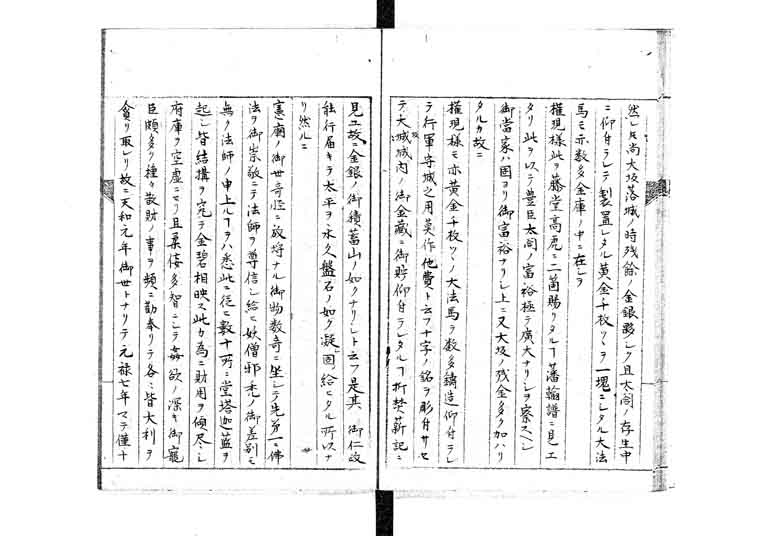 然レ𪜈尚大坂落城ノ時残餘ノ金銀夥シク且太閤ノ存生中
ニ仰付ラレテ製置レタル黄金千枚ツヽヲ一塊ニシタル大法
馬モ亦数多金庫ノ中ニ在シヲ
権現様此ヲ藤堂高虎ニ二箇賜リタルヿ藩翰譜ニ見エ
タリ此ヲ以テ豊臣太閤ノ富裕極テ廣大ナリシヲ察スヘシ
御當家ハ固ヨリ御富裕ナリシ上ニ又大坂ノ残金多ク加ハリ
タルカ故ニ
権現様モ亦黄金千枚ツヽノ大法馬ヲ数多鑄造仰付ラレ
テ行軍守城之用莫作他費ト云フ十字ノ銘ヲ彫付サセ
テ大城城内ノ御金藏ニ御貯仰付ラレタルヿ折焚薪記ニ
見エ故ニ金銀ノ御積蓄山ノ如クナリシト云フ是其御仁政
能行届キテ太平ヲ永久盤石ノ如ク凝固給ヒタル所以ナ
リ然ルニ
憲廟ノ御世奇怪ニ放将ナル御物数奇ニ坐シテ先第一ニ佛
法ヲ御崇敬ニテ法師ヲ尊信シ給ヒ妖僧邪禿ノ御差別モ
無ク法師ノ申上ルヿヲハ悉此ニ従ヒ数十所ニ堂塔迦藍ヲ
起シ皆結構ヲ究テ金碧相映ス此カ為ニ財用ヲ傾尽シ
府庫ヲ空虚ニセリ且柔佞多智ニシテ姦欲ノ深キ御寵
臣頗多ク種々散財ノ事ヲ頻ニ勧奉リテ各々皆大利ヲ
貪リ取レリ故ニ天和元年御世トナリテ元禄七年マテ僅十